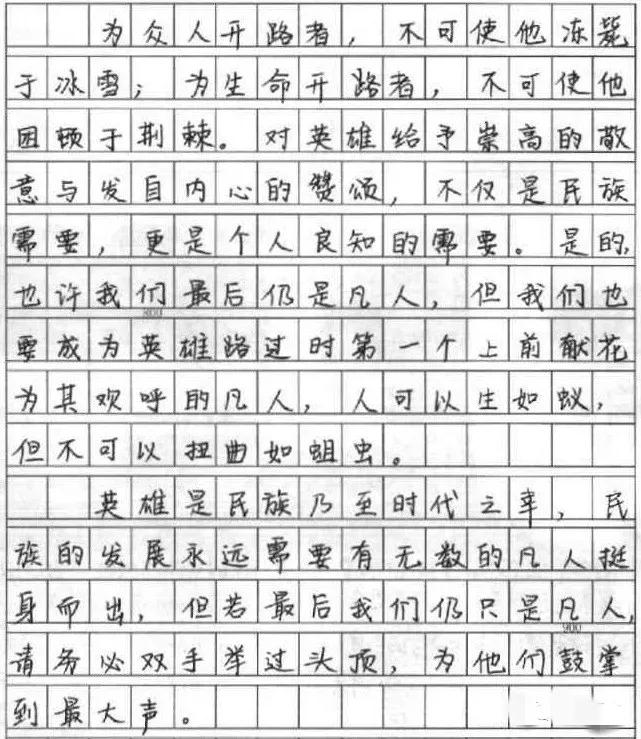 为众人开路者，不可使他冻毙
于冰雪；为生命开路者，不可使他
困顿于荆棘。对英雄给予崇高的敬
意与发自内心的赞颂，不仅是民族
需要，更是个人良知的需要。是的，
也许我们最后仍是凡人，但我们也
800
要成为英雄路过时第一个上前献花
为其欢呼的凡人，人可以生如蚁，
但不可以扭曲如蛆虫。
英雄是民族乃至时代之幸，民
族的发展永远需要有无数的凡人挺
身而出，但若最后我们仍只是凡人，
900
请务必双手举过头顶，为他们鼓掌
到最大声。